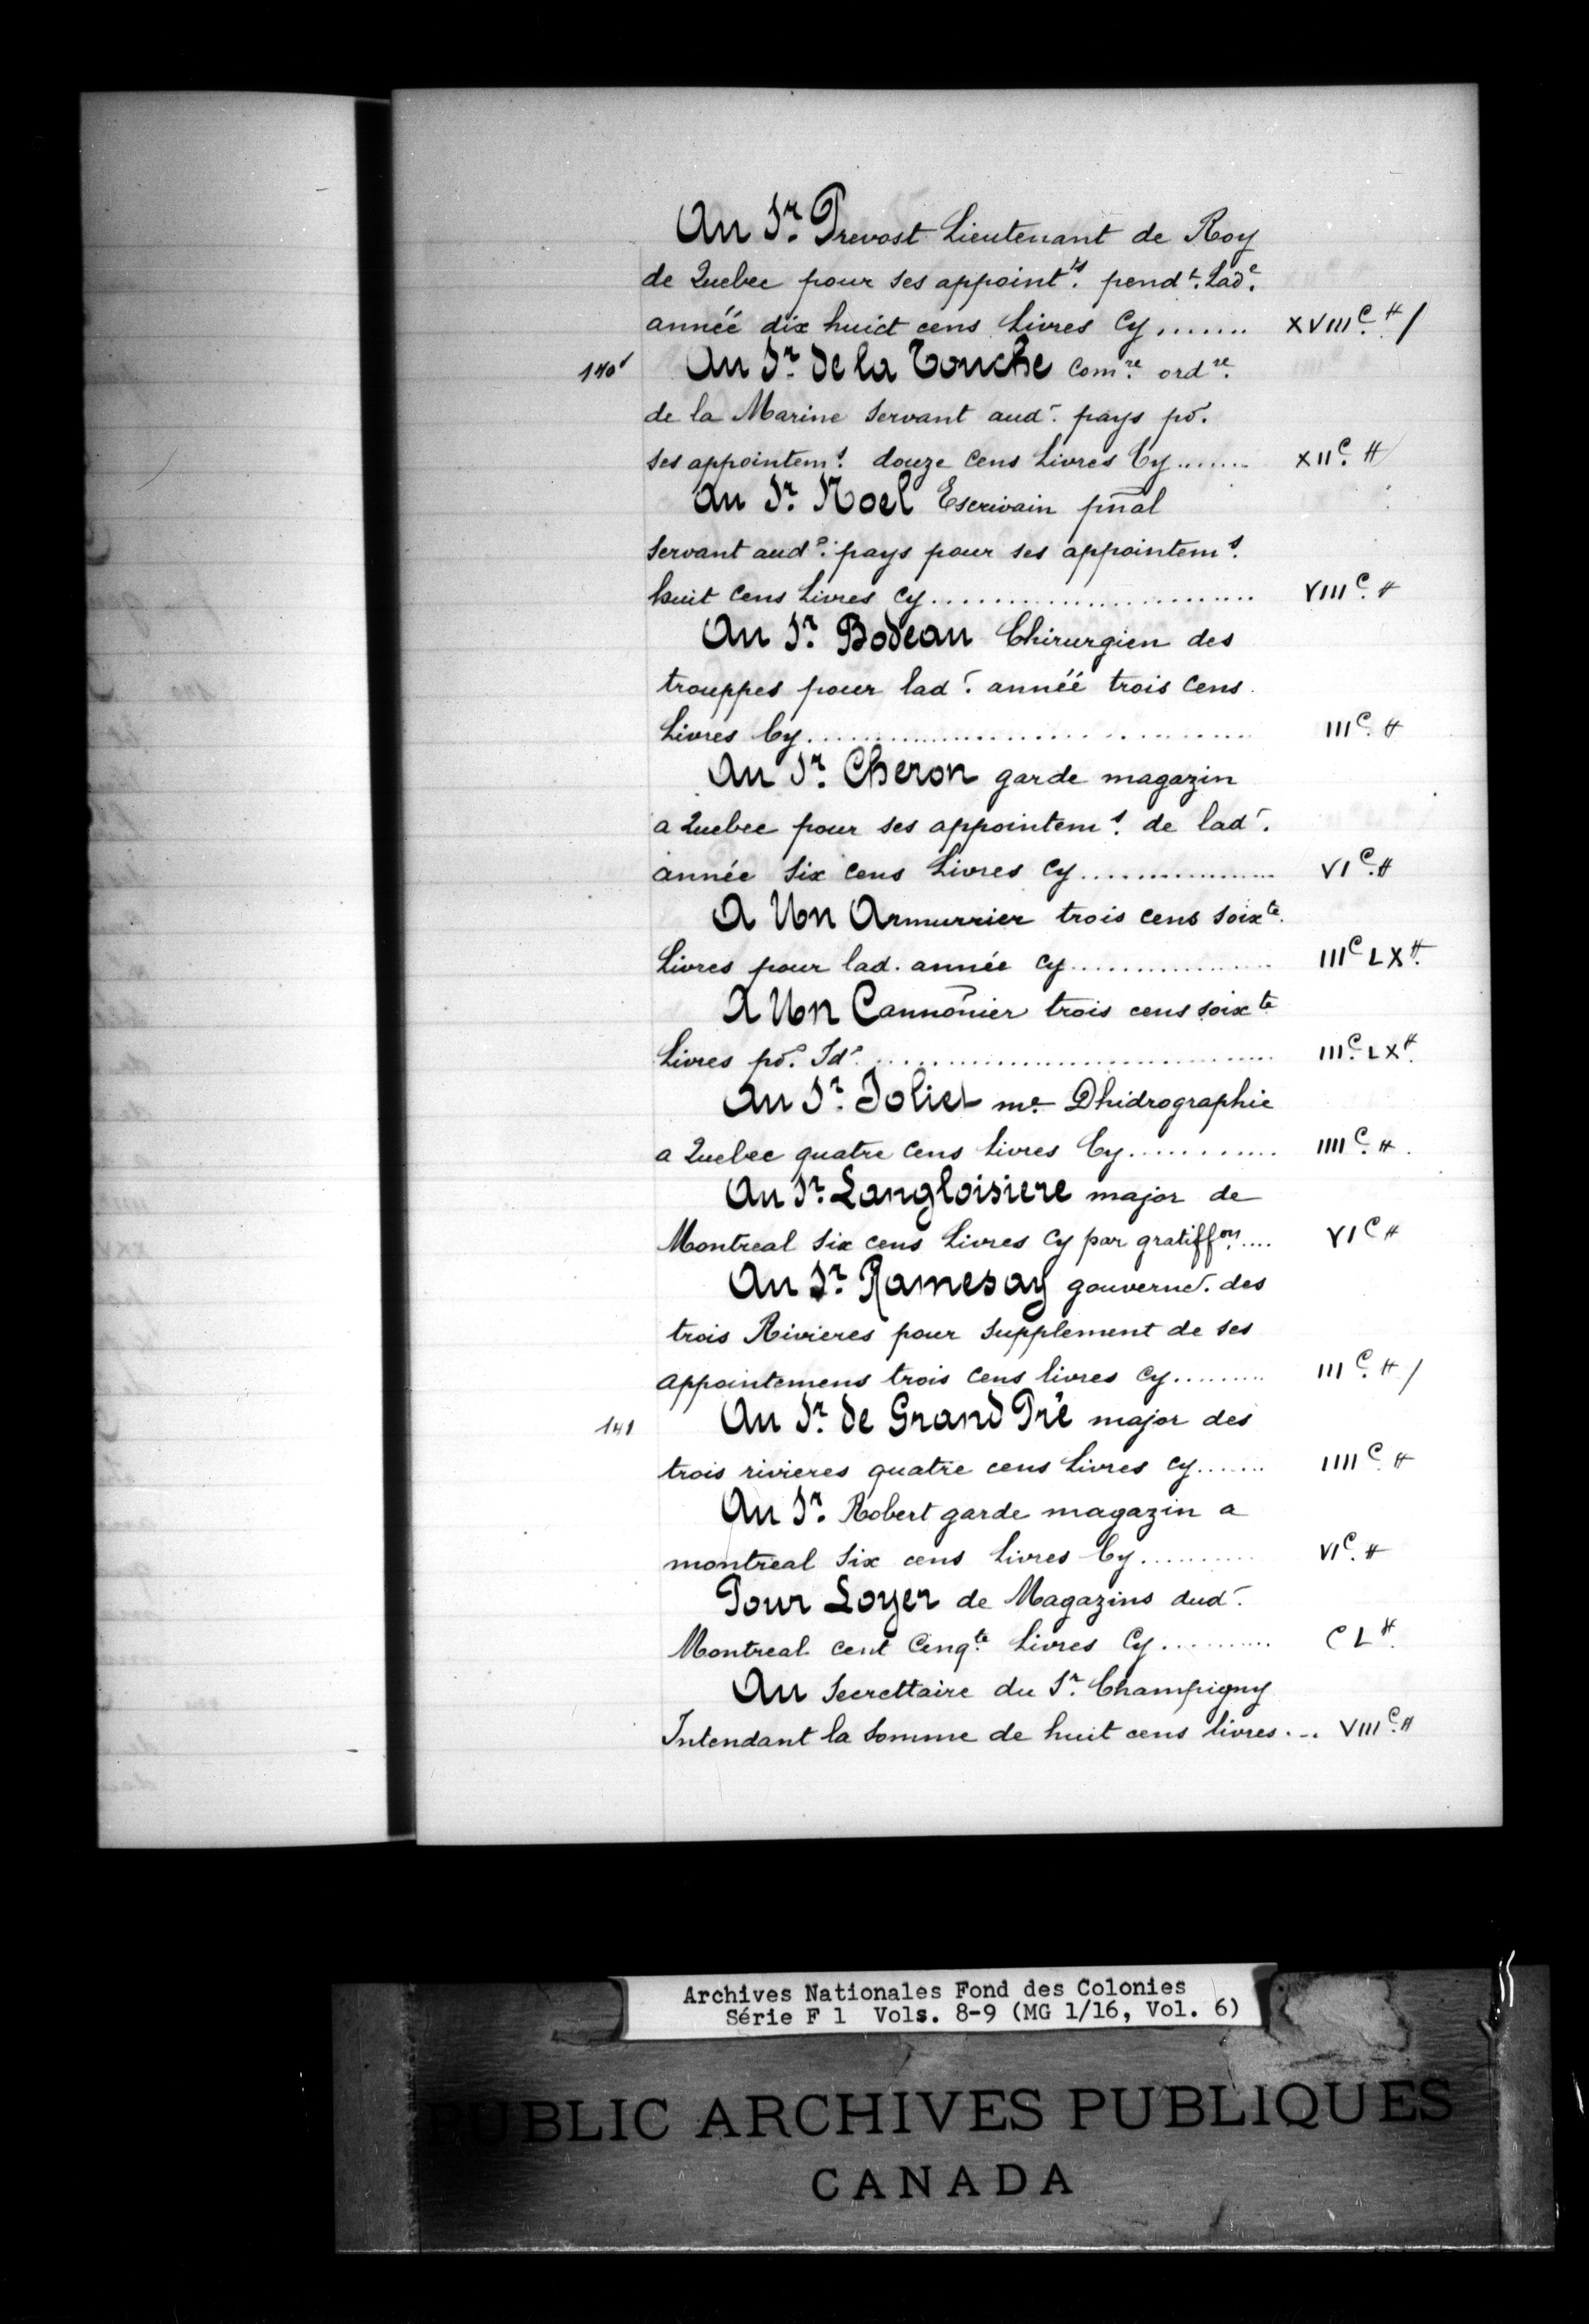 Au Sr. Prevost Lieutenant de Roy
de Quebec pour ses appointts. pendt. Lade.
année dix huict cens Livres Cy....... XVIIIc. ₶/
140v Au Sr. de la Touche Comre. ordre.
de la Marine Servant aud. pays po.
ses appointems. douze Cens Livres Cy....... XIIc. ₶
Au Sr. Noel Escrivain pñal
Servant aud. pays pour ses appointems.
huit Cens Livres Cy....................... VIIIc. ₶
Au Sr. Bodeau Chirurgien des
trouppes pour lad. année trois Cens
Livres Cy............................... IIIc. ₶
Au Sr. Cheron garde magazin
a Quebec pour ses appointems. de lad.
année Six Cens Livres Cy................. VIc. ₶
A Un Armurrier trois cens soixte.
Livres pour lad. année Cy................. IIIc LX ₶.
A Un Cannonier trois cens soixte
Livres po. Id. ............................... IIIc. LX ₶.
Au Sr. Joliet me. Dhidrographie
a Quebec quatre Cens Livres Cy............ IIIIc. ₶.
Au Sr. Langloisiere major de
Montreal Six cens Livres Cy par gratiffon.... VIc ₶
Au Sr. Ramesay gouverne. des
trois Rivieres pour Supplement de ses
appointemens trois Cens livres Cy......... IIIc. ₶ /
141 Au Sr. de Grand Pré major des
trois rivieres quatre cens Livres Cy....... IIIIc. ₶
Au Sr. Robert garde magazin a
montreal Six cens Livres Cy.......... VIc. ₶
Pour Loyer de Magazins dud.
Montreal cent Cinqte. Livres Cy.......... CL ₶.
Au Secrettaire du Sr. Champigny
Intendant la Somme de huit cens livres... VIIIc. ₶
Archives Nationales Fond des Colonies
Série F 1 Vols. 8-9 (MG 1/16, Vol. 6)
PUBLIC ARCHIVES PUBLIQUES
CANADA